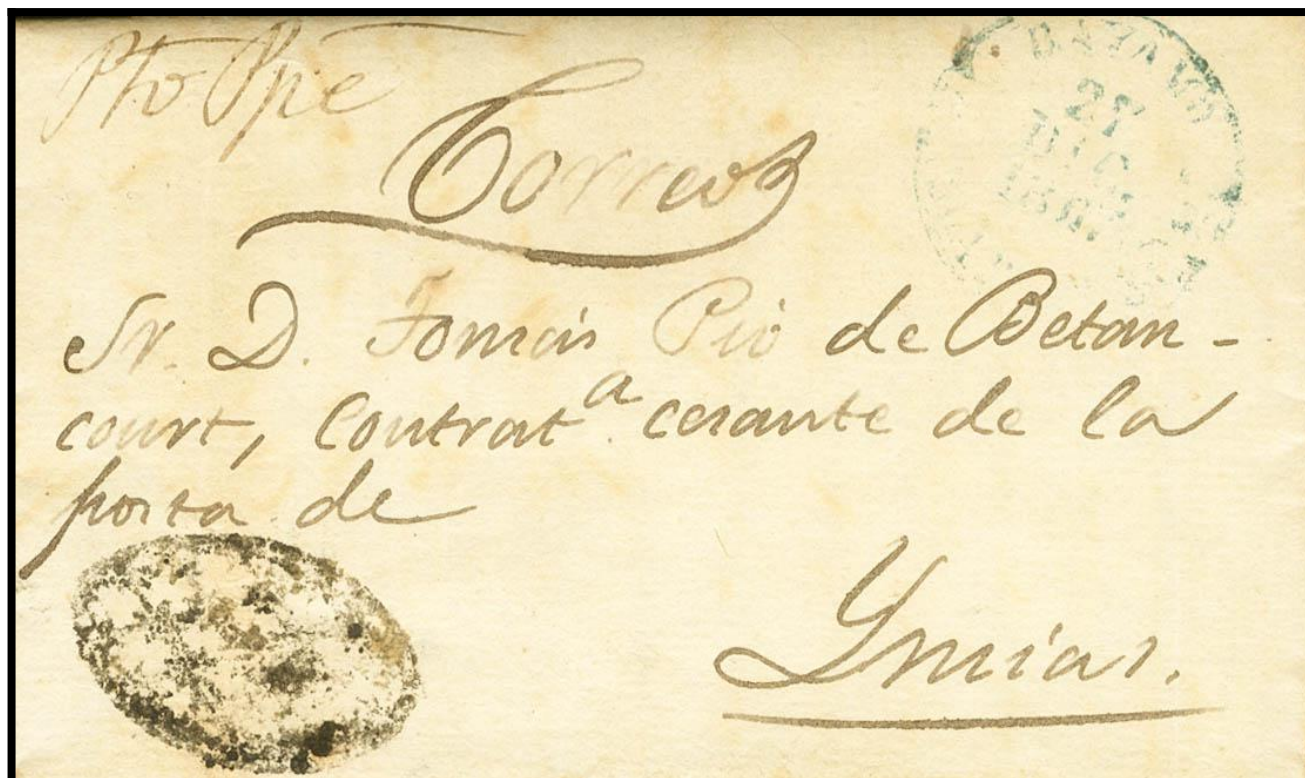 Pto Ppe
Correos
Sr. D. Tomás Pio de Betan-
court, Contrat.a cesante de la
posta de
Ymias.
27
DIC